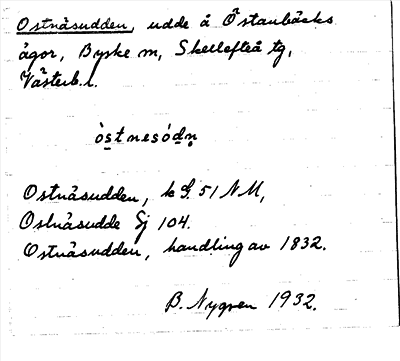 Ostnäsudden, udde å Östanbäcks
ägor, Byske sn, Skellefteå tg,
Västerb. l.
òstnesódn̥
Ostnäsudden, k G. 51 NM,
Ostnäsudde Sj 104.
Ostnäsudden, handling av 1832.
B. Nygren 1932.